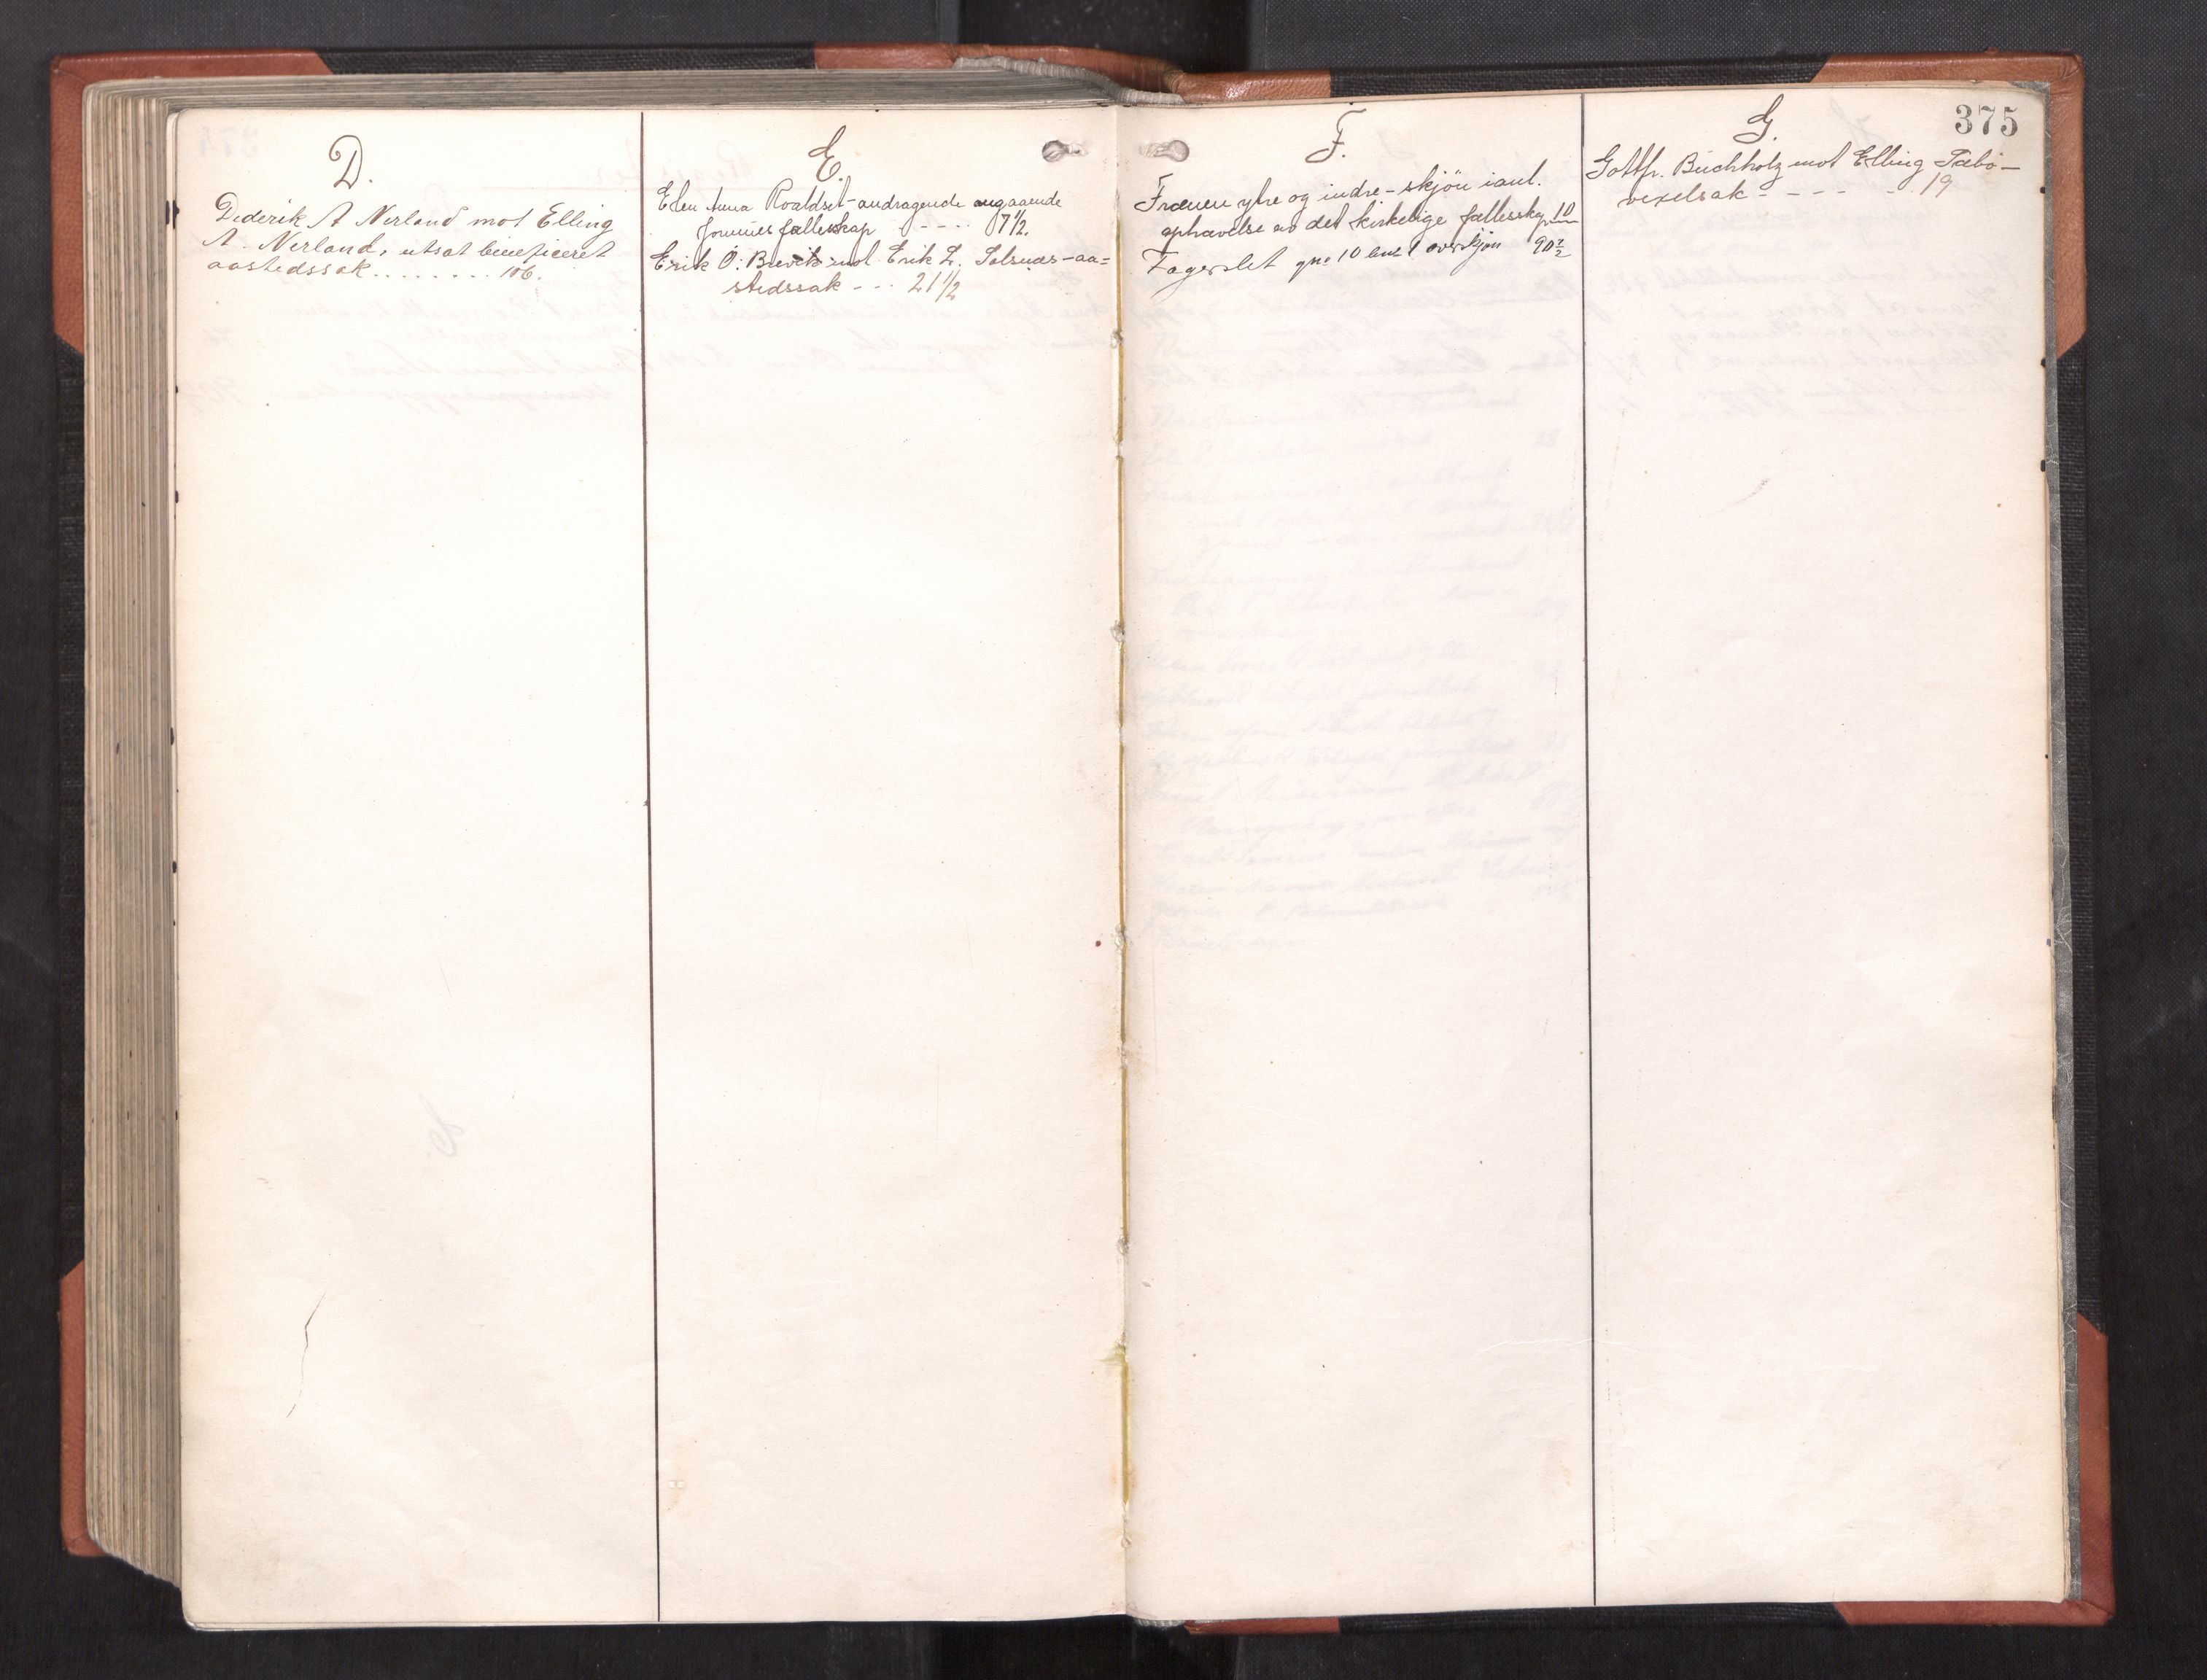 D.
Dederik A Nerland mot Elling
A. Nerland, utsat beneficeret
aastedssak......... 106.
E.
Elen Anna Roaldset - andragende angaaende
formuesfælleskap - - - - 17 1/2.
Erik O. Brevik mot Erik L. Solsnæs - aa=
stedssak - - - 21 1/2
F.
Frænen ytre og indre - skjön i anl.
ophævelse av det kirkelige fællesskap 10
Fagerslet gno 10 bno 1 overskjön 90 1/2
375
G.
Gottfr. Buchholz mot Elling Tæbö -
vexelsak - - - - - . . 19